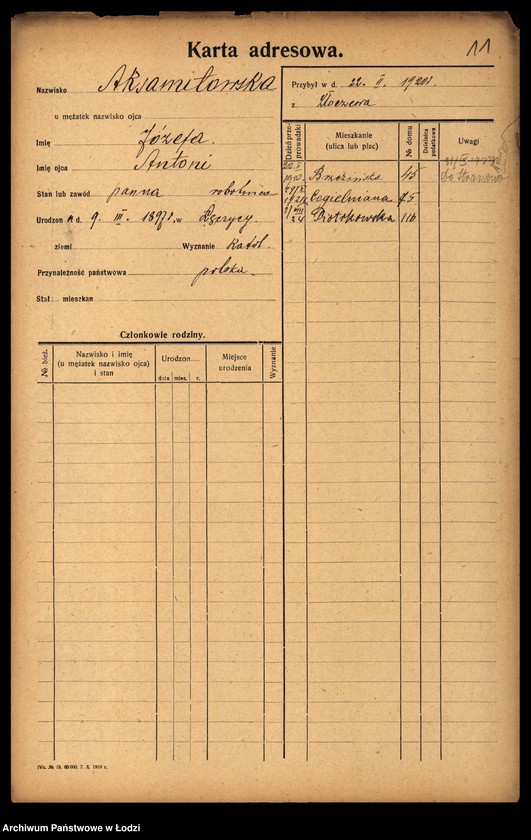 11
Karta adresowa.
Nazwisko Aksamitowska
u mężatek nazwisko ojca
Imię Józefa.
Imię ojca Antoni
Stan lub zawód panna robotnica
Urodzon a d. 9. III. 1897 r. w
ziemi Wyznanie katol.
Przynależność państwowa polska
Stał. mieszkan
Przybył w d. 22. II. 1920 r.
z Złoczewa
Dzień prze-prowadzki
Mieszkanie (ulica lub plac)
№ domu
Dzielnica podatkowa
Uwagi
Brzezińska 45
Cegielniana 75
Piotrkowska 116
Członkowie rodziny.
№ bież.
Nazwisko i imię (u mężatek nazwisko ojca) i stan
Urodzon
dnia mies. r.
Miejsce urodzenia
Wyznanie
60 000. 7. X. 1919 r.
Archiwum Państwowe w Łodzi